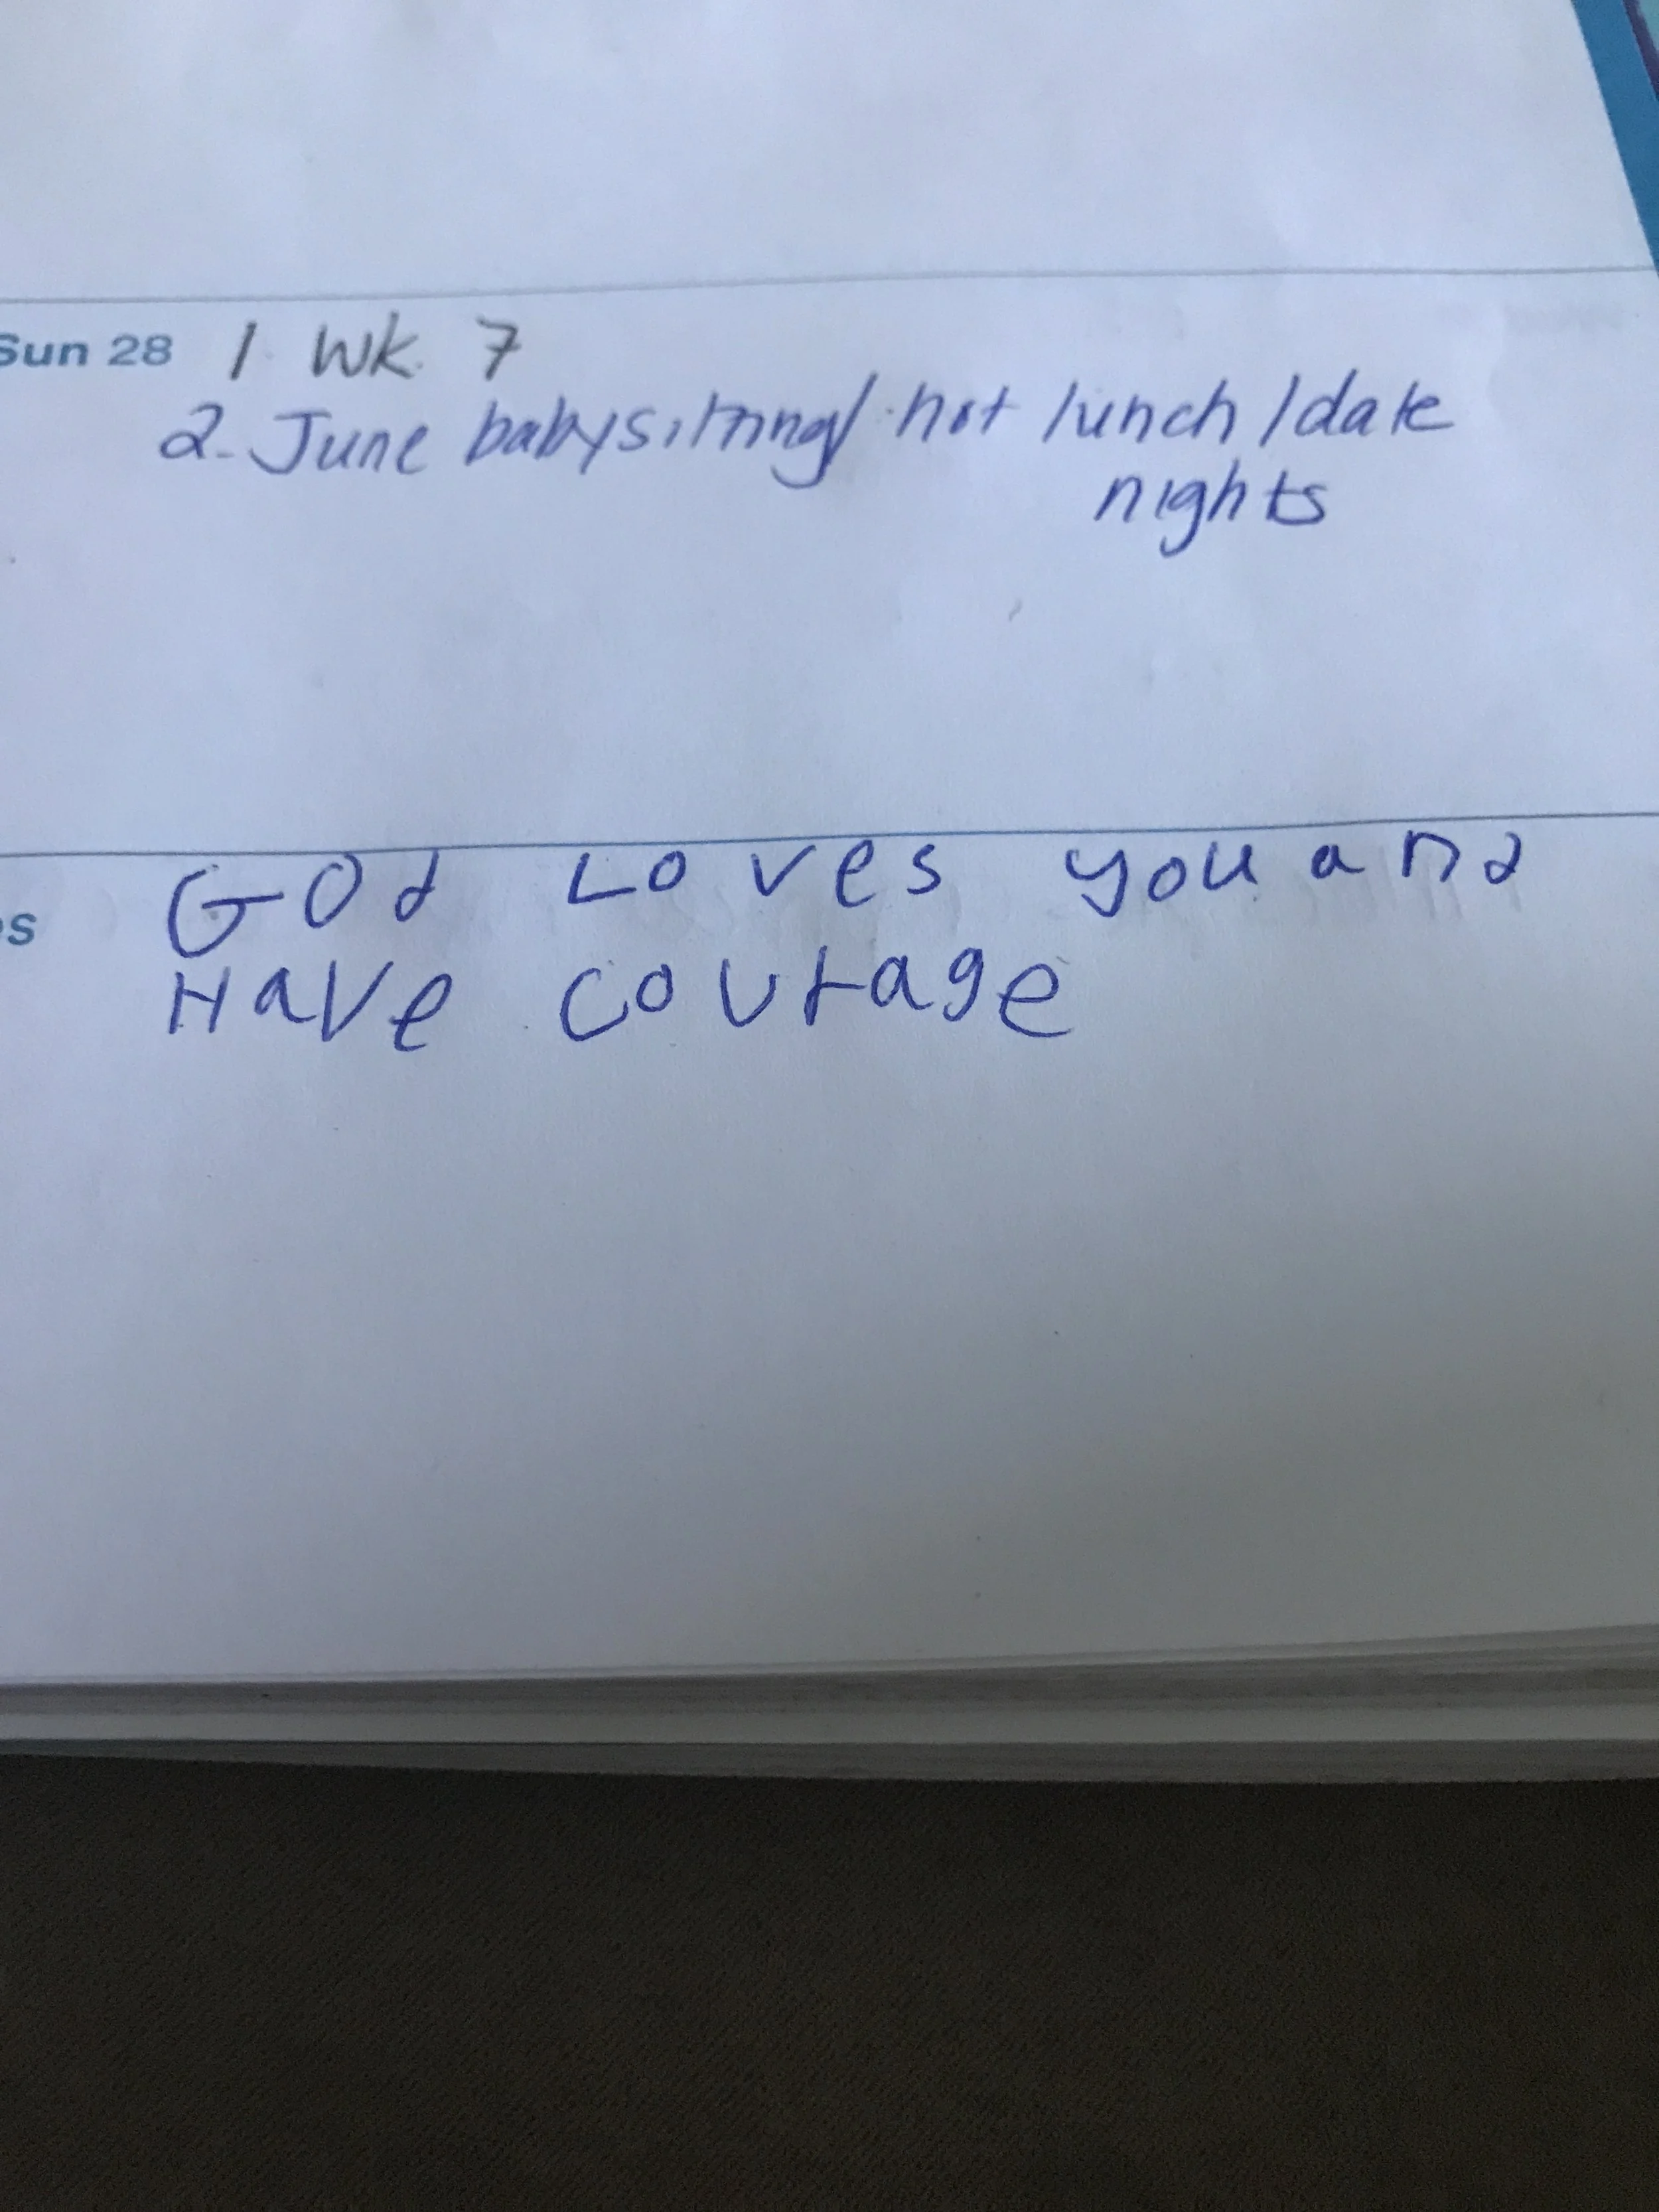 Sun 28 1 Wk. 7
2. June babysitting/ hot lunch/date
nights
God Loves you and
s Have courage